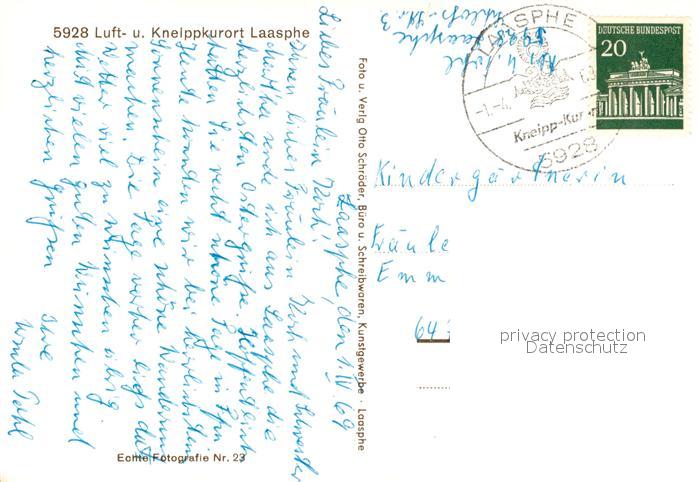 5928 Luft- u. Kneippkurort Laasphe
Laasphe, den 1. IV. 69
Liebes Fräulein Koch!
Ihnen, liebes Fräulein Koch und Schwester
Martha sende ich aus Laasphe die
herzlichsten Ostergrüße. Hoffentlich
hatten Sie recht schöne Tage in
Heute wanderten wir bei herrlichstem
Sonnenschein eine schöne Wanderung
machen. Die Tage vorher ließ das
Wetter viel zu wünschen übrig
Mit vielen guten Wünschen und
herzlichen Grüßen
Ihre
Ursula Pahl
Echte Fotografie Nr. 23
Foto u. Verlg Otto Schröder, Büro u. Schreibwaren, Kunstgewerbe · Laasphe
Abs. U. Pahl
5928 Laasphe
Schloß-Str. 3
LAASPHE
-1.-4.
69
Kneipp-Kurort
5928
DEUTSCHE BUNDESPOST
20
Kindergärtnerin
Fräule
Emm
64
privacy protection
Datenschutz